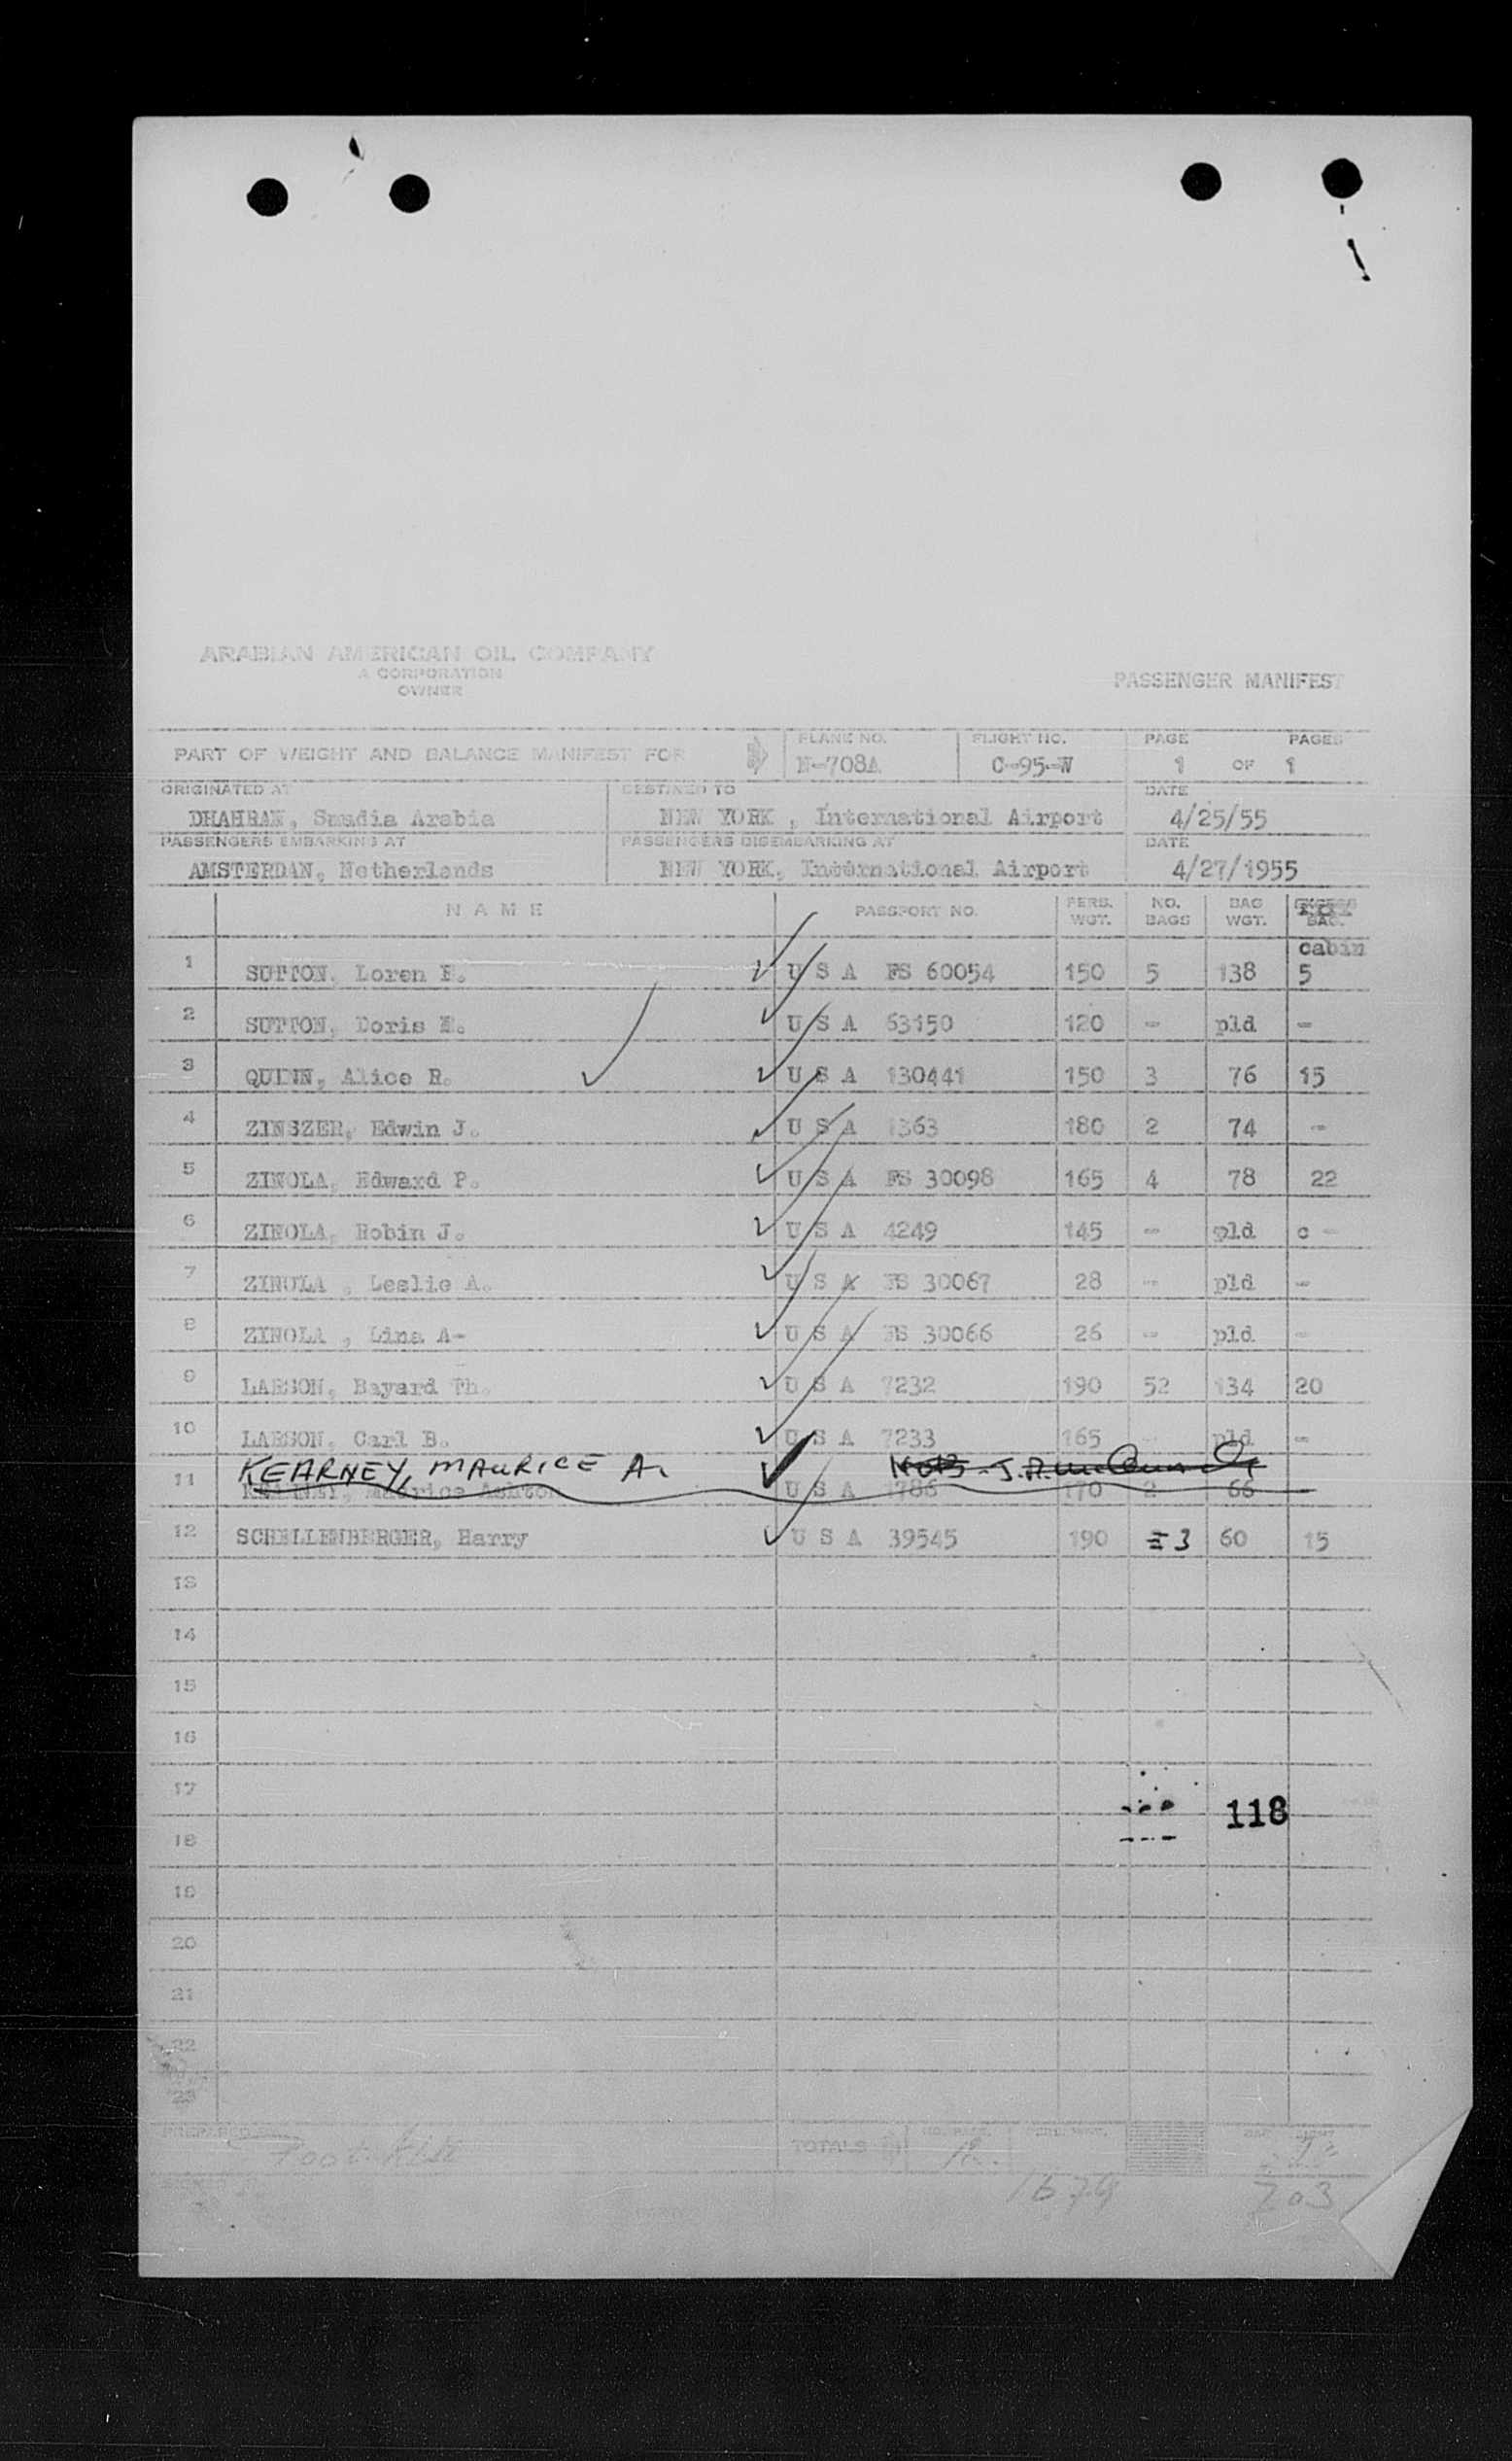 ARABIAN AMERICAN OIL COMPANY
A CORPORATION
OWNER
PASSENGER MANIFEST
PART OF WEIGHT AND BALANCE MANIFEST FOR
PLANE NO. FLIGHT NO. PAGE PAGES
N-708A C-95-W 1 OF 1
ORIGINATED AT DESTINED TO DATE
DHAHRAN, Saudia Arabia NEW YORK , International Airport 4/25/55
PASSENGERS EMBARKING AT PASSENGERS DISEMBARKING AT DATE
AMSTERDAN, Netherlands NEW YORK, International Airport 4/27/1955
NAME PASSPORT NO. PERS. WGT. NO. BAGS BAG WGT. BAG.
cabin
1 SUTTON, Loren U S A FS 60054 150 5 138 5
2 SUTTON, Doris U S A 63150 120 - pld -
3 QUINN, Alice R. U S A 130441 150 3 76 15
4 ZINSZER, Edwin J. U S A 1363 180 2 74 -
5 ZINOLA, Edward P. U S A FS 30098 165 4 78 22
6 ZINOLA, Robin J. U S A 4249 145 - pld c -
7 ZINOLA , Leslie A. U S A FS 30067 28 - pld -
8 ZINOLA , Lina A- U S A FS 30066 26 - pld -
9 LARSON, Bayard Th. U S A 7232 190 52 134 20
10 LARSON, Carl B. U S A 7233 165 - pld -
KEARNEY, MAURICE A.
11 Maurice Ashton U S A 1786 170 2 66
12 SCHELLENBERGER, Harry U S A 39545 190 3 60 15
13
14
15
16
17
118
18
19
20
21
22
23
PREPARED TOTALS
12
1679
703